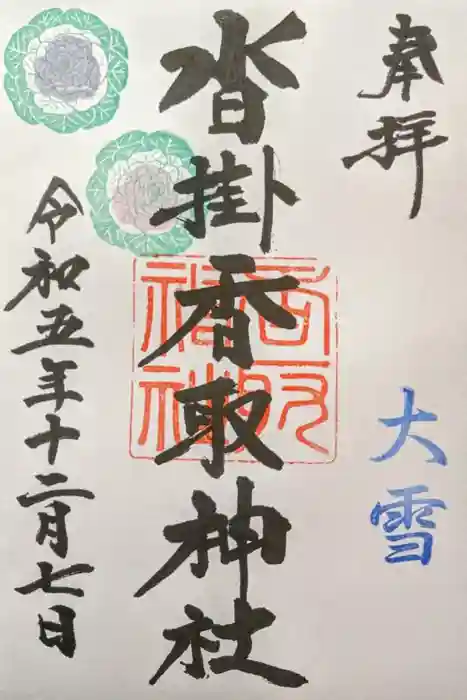 奉拝
大雪
沓掛香取神社
令和五年十二月七日